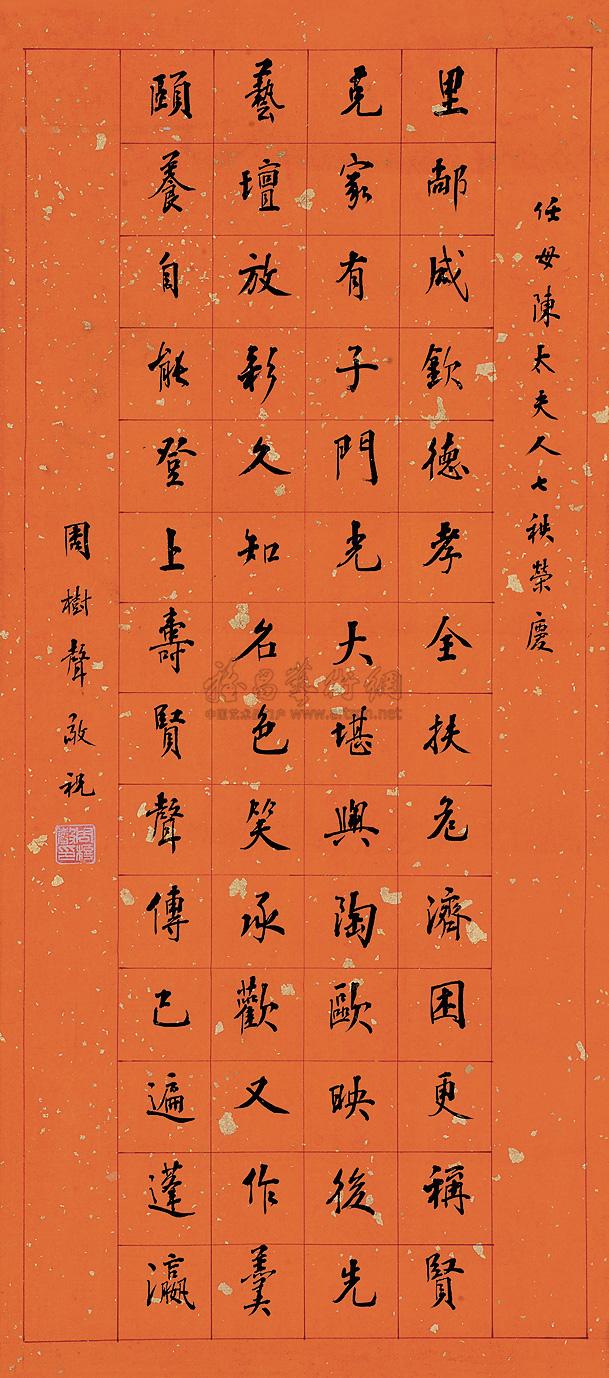 任母陳太夫人七秩榮慶
里鄰咸欽德孝全扶危濟困更稱賢
克家有子門光大堪與陶歐映後先
藝壇放彩久知名色笑承歡又作羹
頤養自能登上壽賢聲傳已遍蓬瀛
周樹聲敬祝